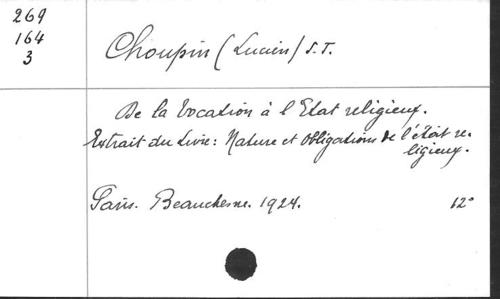 269
164
3
Choupin (Lucien) S.T.
De la Vocation à l'Etat religieux.
Extrait du Livre: Nature et Obligations de l'état re-
ligieux.
Paris. Beauchesne. 1924. 12°